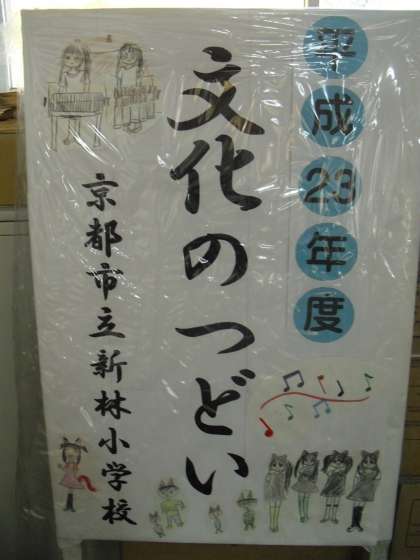 平成23年度
文化のつどい
京都市立新林小学校